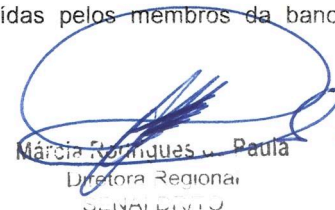 ídas pelos membros da banc
Márcia Rodrigues Paula
Diretora Regional